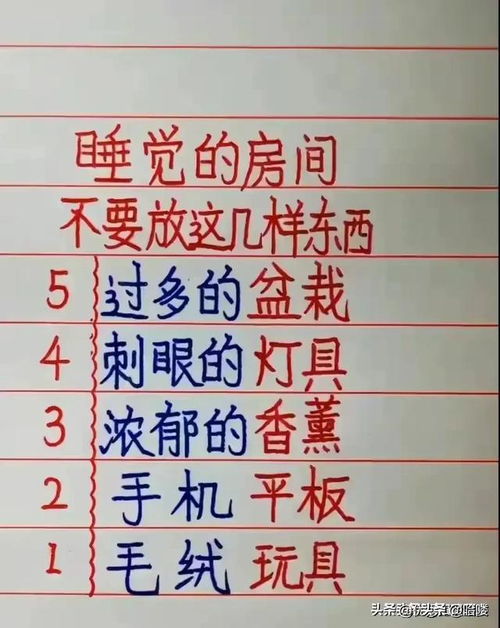 睡觉的房间
不要放这几样东西
5 过多的盆栽
4 刺眼的灯具
3 浓郁的香薰
2 手机平板
1 毛绒玩具